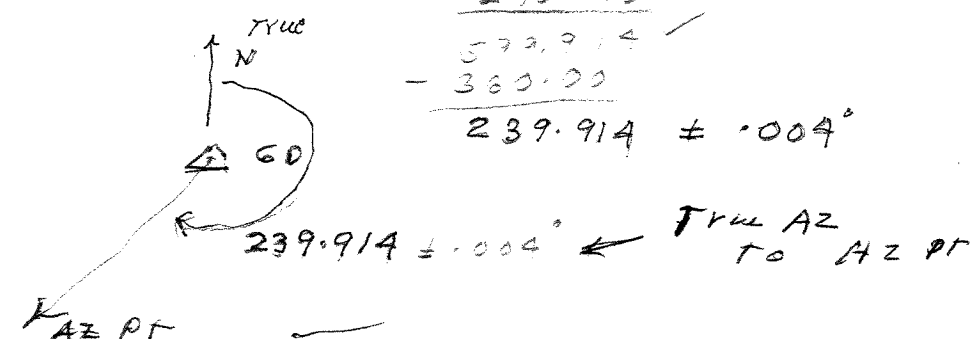 True
N
599.914
- 360.00
239.914 ± .004°
GD
239.914 ± .004° ← True AZ
TO AZ PT
AZ PT